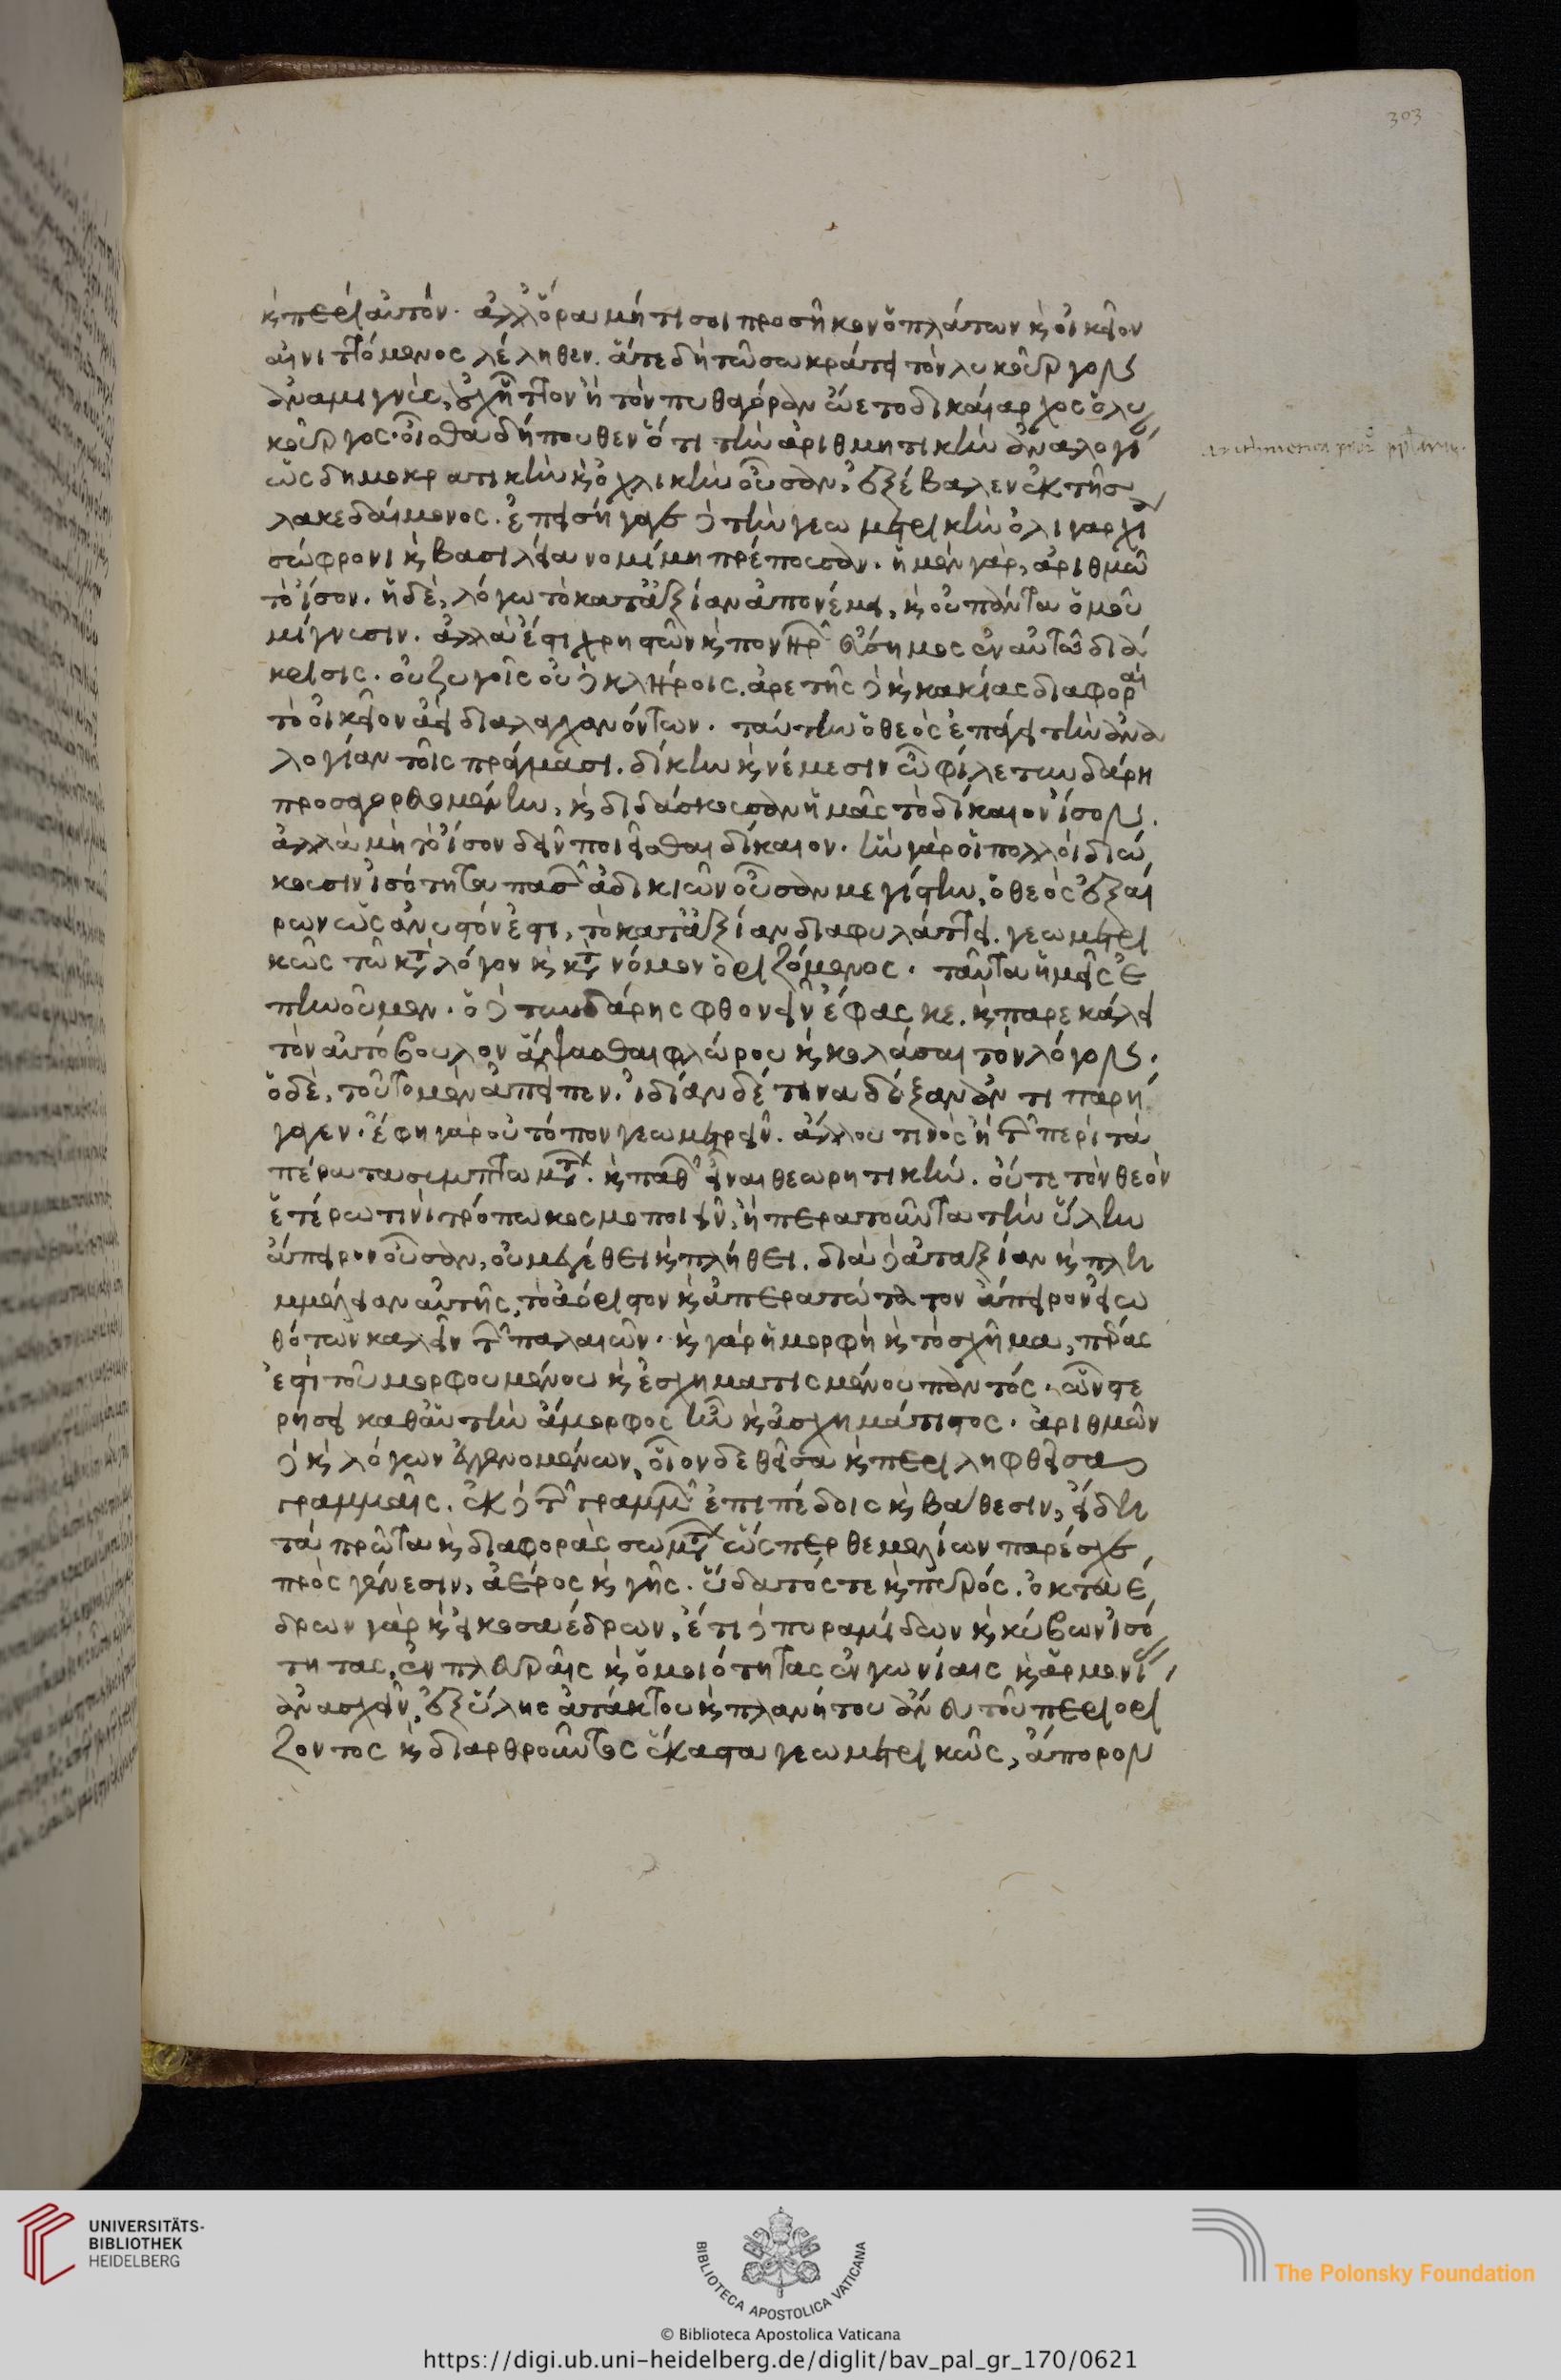 303
κ περὶ αὐτόν. ἀλλ' ὅρα μή τι σοι προσῆκον ὁ πλάτων κ οἰκεῖον
αἰνιττόμενος λέληθεν. ἅτε δὴ τῶ σωκράτει τὸν λυκοῦργον
ἀναμιγνὺς, οὐχ ἧττον ἢ τὸν πυθαγόραν ὤετο δικαίαρχος. ὁ λυ
κοῦργος· οἶσθα δήπουθεν ὅτι τὴν ἀριθμητικὴν ἀναλογί
ὡς δημοκρατικὴν κ ὀχλικὴν οὖσαν, ἐξέβαλεν ἐκ τῆς
λακεδαίμονος. ἐπεσήγαγε δὲ τὴν γεωμετρικὴν ὀλιγαρχί
σώφρονι κ βασιλεία νομίμη πρέπουσαν. ἡ μὲν γὰρ, ἀριθμῶ
τὸ ἴσον. ἡ δὲ, λόγω τὸ κατ' ἀξίαν ἀπονέμει, κ οὐ πάντα ὁμοῦ
μίγνυσιν. ἀλλ' ἔστι χρηστῶν κ πονηρ εὔσημος ἐν αὐτῶ διά
κρισις. οὐ ζυγοῖς οὐ δὲ κλήροις. ἀρετῆς δὲ κ κακίας διαφορᾶι
τὸ οἰκεῖον ἀεὶ διαλαγχανόντων. ταύτην ὁ θεὸς ἐπάγει τὴν ἀνα
λογίαν τοῖς πράγμασι. δίκην κ νέμεσιν ὦ φίλε τυνδάρη
προσαγορευομένην, κ διδάσκουσαν ἡμᾶς τὸ δίκαιον ἴσον.
ἀλλὰ μὴ τὸ ἴσον δεῖν ποιεῖσθαι δίκαιον. ἣν γὰρ οἱ πολλοὶ διώ
κουσιν ἰσότητα πασ ἀδικιῶν οὖσαν μεγίστην, ὁ θεὸς ἐξαί
ρων ὡς ἀνυστόν ἐστι, τὸ κατ' ἀξίαν διαφυλάττει. γεωμετρι
κῶς τῶ κτ λόγον κ κτ νόμον ὁριζόμενος. ταῦτα ἡμεῖς ἐ
πηνοῦμεν. ὁ δὲ τυνδάρης φθονεῖν ἔφασκε. κ παρεκάλει
τὸν αὐτόβουλον ἅψασθαι φλώρου κ κολάσαι τὸν λόγον.
ὁ δὲ, τοῦτο μὲν ἀπεῖπεν. ἰδίαν δέ τινα δόξαν ἀν τι παρή
γαγεν. ἔφη γὰρ οὐ τό πον γεωμετρεῖν. ἄλλου τινὸς ἢ τ περὶ τὰ
πέρατα συμπτωμτ. κ παθ εἶναι θεωρητικήν. οὔτε τὸν θεὸν
ἑτέρω τινὶ τρόπω κοσμοποιεῖν, ἢ περατοῦντα τὴν ὕλην
ἄπειρον οὖσαν, οὐ μεγέθει κ πλήθει. διὰ δὲ ἀταξίαν κ πλη
μμέλειαν αὐτῆς, τὸ ἀόριστον κ ἀπερατώτατον ἄπειρον εἰω
θότων καλεῖν τ παλαιῶν. κ γὰρ ἡ μορφὴ κ τὸ σχῆμα, πέρας
ἐστὶ τοῦ μορφουμένου κ ἐσχηματισμένου παντός. ὧν στε
ρήσει καθ' αὑτὴν ἄμορφος ἦν κ ἀσχημάτιστος. ἀριθμῶν
δὲ κ λόγων ἐγγενομένων, οἷον δεθεῖσα κ περιληφθεῖσα
γραμμαῖς. ἐκ δὲ τ γραμμ ἐπιπέδοις κ βάθεσιν, εἴδη
τὰ πρῶτα κ διαφορὰς σωμτ ὥσπερ θεμελίων παρέσχε,
πρὸς γένεσιν, ἀέρος κ γῆς. ὕδατός τε κ πυρός. ὀκταέ
δρων γὰρ κ εἰκοσαέδρων, ἔτι δὲ πυραμίδων κ κύβων ἰσό
τητας, ἐν πλευραῖς κ ὁμοιότητας ἐν γωνίαις κ ἁρμονί
ἀνασχεῖν, ἐξ ὕλης ἀτάκτου κ πλανήτου ἄνευ τοῦ περιορί
ζοντος κ διαρθροῦντος ἕκαστα γεωμετρικῶς, ἄπορον
UNIVERSITÄTS-
BIBLIOTHEK
HEIDELBERG
BIBLIOTECA APOSTOLICA VATICANA
The Polonsky Foundation
© Biblioteca Apostolica Vaticana
https://digi.ub.uni-heidelberg.de/diglit/bav_pal_gr_170/0621